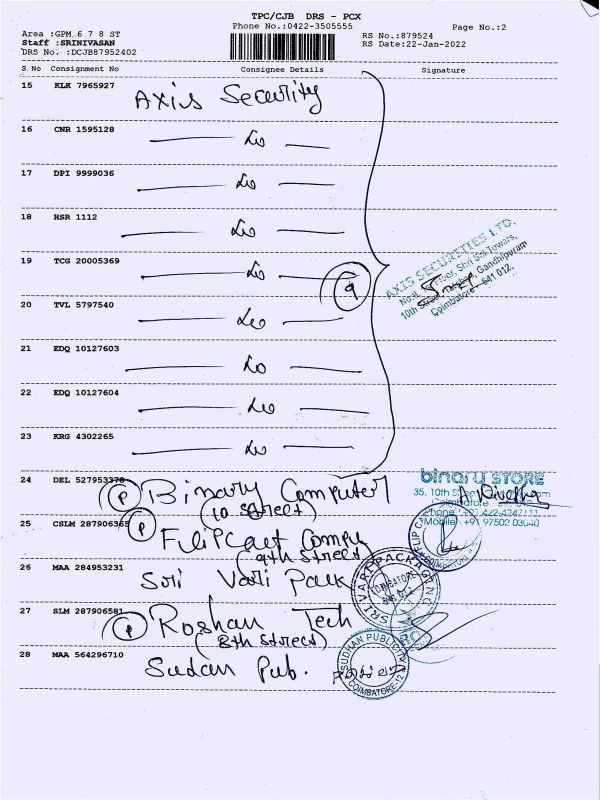 TPC/CJB DRS - PCX
Phone No.:0422-3505555
Page No.:2
Area :GPM 6 7 8 ST
Staff :SRINIVASAN
DRS No. :DCJB87952402
RS No.:879524
RS Date:22-Jan-2022
S.No Consignment No Consignee Details Signature
15 KLK 7965927 Axis Security
16 CNR 1595128
17 DPI 9999036
18 HSR 1112
19 TCG 20005369
9
20 TVL 5797540
21 EDQ 10127603
22 EDQ 10127604
23 KRG 4302265
AXIS SECURITIES LTD,
Floor, Shri Sai Towers,
Gandhipuram
Coimbatore - 641 012.
24 DEL 527953378 P Binary Computer
(10 Street)
binary STORE
35, 10th
Coimbatore
Phone: +91 422-4242111
Mobile: +91 97502 03040
25 CSLM 287906365 P
(9th Street)
26 MAA 284953231 Sri Vari Pack
SRI VARI PACKAGING
COIMBATORE
27 SLM 287906581 P Roshan Tech
(8th Street)
28 MAA 564296710 Sudan Pub.
SUDHAN PUBLICITY
COIMBATORE-12